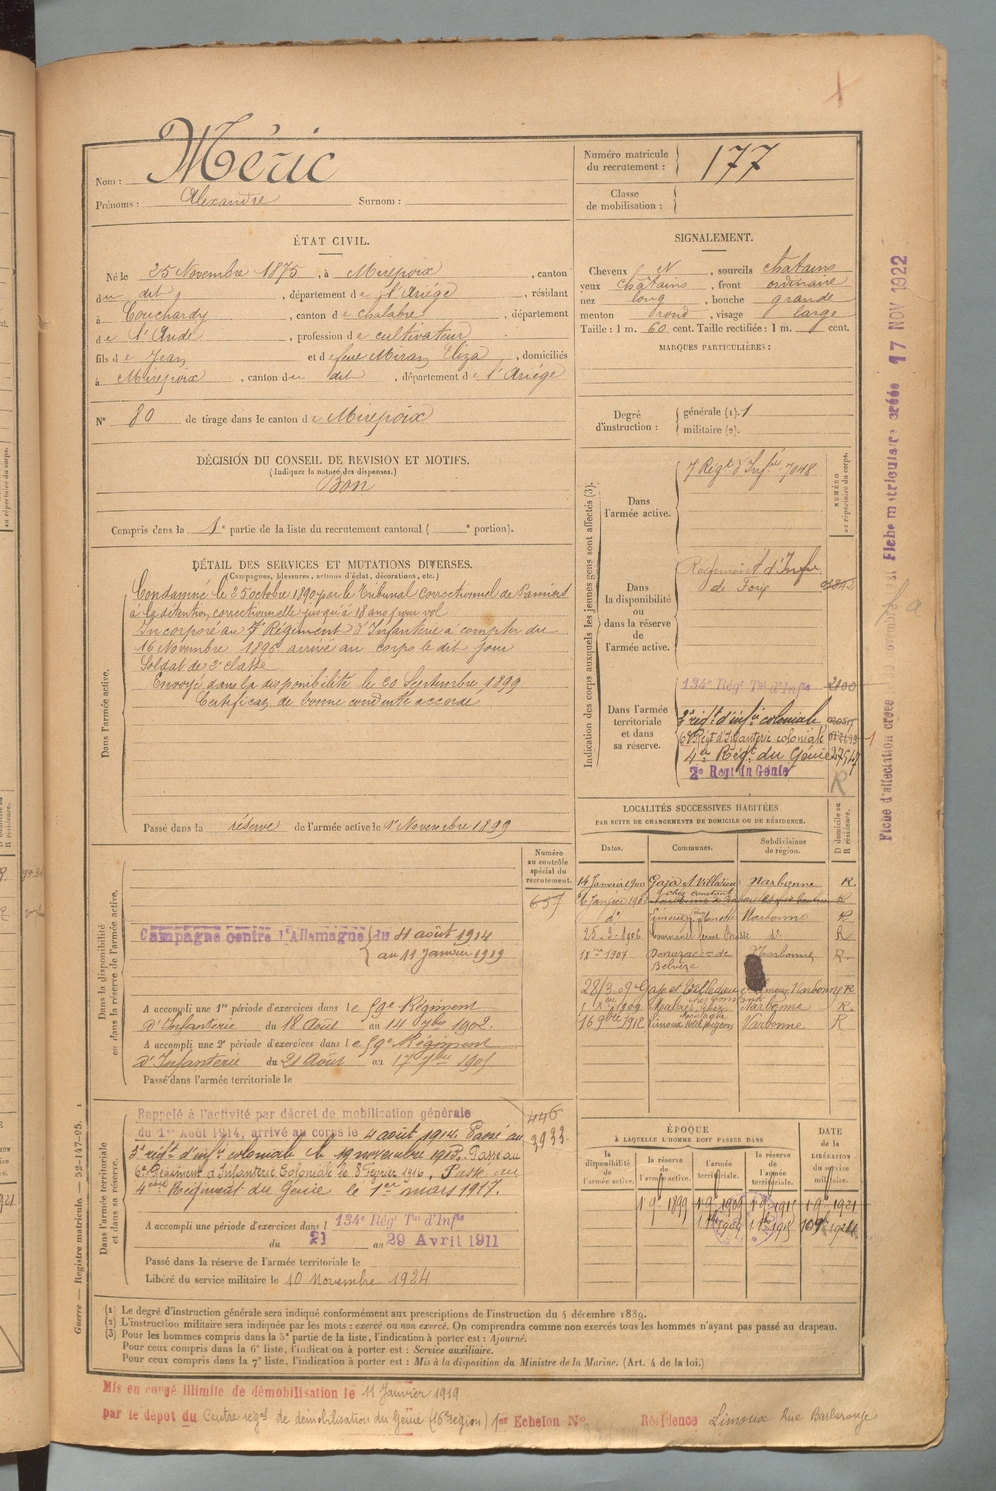 Nom : Méric
Prénoms : Alexandre Surnom :
Numéro matricule du recrutement : 177
Classe de mobilisation :
ÉTAT CIVIL.
Né le 25 Novembre 1875, à Mirepoix, canton
du dit, département de l'Ariége, résidant
à Couchardy, canton de Chalabre, département
de l'Aude, profession de cultivateur
fils de Jean et de feue Miran Eliza, domiciliés
à Mirepoix, canton du dit, département de l'Ariége
N° 80 de tirage dans le canton de Mirepoix
SIGNALEMENT.
Cheveux N, sourcils chatains
yeux chatains, front ordinaire
nez long, bouche grande
menton rond, visage large
Taille : 1 m. 60 cent. Taille rectifiée : 1 m. cent.
MARQUES PARTICULIÈRES :
Degré d'instruction : générale (1). 1
militaire (2).
DÉCISION DU CONSEIL DE REVISION ET MOTIFS.
(Indiquer la nature des dispenses.)
Bon
Compris dans la 1e partie de la liste du recrutement cantonal ( e portion).
DÉTAIL DES SERVICES ET MUTATIONS DIVERSES.
(Campagnes, blessures, actions d'éclat, décorations, etc.)
Dans l'armée active.
Condamné le 25 octobre 1890 par le Tribunal Correctionnel de Pamiers
à la détention correctionnelle jusqu'à 18 ans pour vol
Incorporé au 7e Régiment d'Infanterie à compter du
16 Novembre 1896 arrivé au corps le dit jour
Soldat de 2e classe
Envoyé dans la disponibilité le 20 Septembre 1899
Certificat de bonne conduite accordé
Passé dans la réserve de l'armée active le 1er Novembre 1899
Indication des corps auxquels les jeunes gens sont affectés (3).
NUMÉRO au répertoire du corps.
Dans l'armée active.
7e Régt d'Infrie 7048
Dans la disponibilité ou dans la réserve de l'armée active.
Régiment d'Infie
de Foix
Dans l'armée territoriale et dans sa réserve.
134e Régt Tal d'Infie 2100
3e régt d'infie coloniale
6e Régt d'Infanterie coloniale
4e Régt du Génie
2e Regt du Génie
R
LOCALITÉS SUCCESSIVES HABITÉES
PAR SUITE DE CHANGEMENTS DE DOMICILE OU DE RÉSIDENCE.
Dates. Communes. Subdivisions de région. D domicile ou R résidence.
14 Janvier 1900 Gaja et Villedieu Narbonne R.
Limoux Narbonne R
25-3-1906 do R
1907 Donazac Narbonne R.
28/3 09 Gaja et Villedieu Limoux Narbonne R.
1909 Malras Narbonne R.
16 9bre 1912 Limoux Narbonne R
Dans la disponibilité ou dans la réserve de l'armée active.
Numéro au contrôle spécial du recrutement.
Campagne contre l'Allemagne du 4 août 1914
au 11 Janvier 1919
A accompli une 1re période d'exercices dans le 59e Régiment
d'Infanterie du 18 Août au 14 7bre 1902.
A accompli une 2e période d'exercices dans le 59e Régiment
d'Infanterie du 21 Août au 17 7bre 1905
Passé dans l'armée territoriale le
Dans l'armée territoriale et dans sa réserve.
446
3933
Rappelé à l'activité par décret de mobilisation générale
du 1er Août 1914, arrivé au corps le 4 août 1914. Passé au
3e régt d'infie coloniale le 19 novembre 1915. Passé au
6e Régiment d'Infanterie Coloniale le 8 Février 1916. Passé au
4ème Régiment du Génie le 1er mars 1917.
A accompli une période d'exercices dans l 134e Régt Tal d'Infie
du 21 au 29 Avril 1911
Passé dans la réserve de l'armée territoriale le
Libéré du service militaire le 10 Novembre 1924
ÉPOQUE
À LAQUELLE L'HOMME DOIT PASSER DANS
la disponibilité de l'armée active. la réserve de l'armée active. l'armée territoriale. la réserve de l'armée territoriale.
DATE de la LIBÉRATION du service militaire.
1er 9bre 1899
(1) Le degré d'instruction générale sera indiqué conformément aux prescriptions de l'instruction du 4 décembre 1889.
(2) L'instruction militaire sera indiquée par les mots : exercé ou non exercé. On comprendra comme non exercés tous les hommes n'ayant pas passé au drapeau.
(3) Pour les hommes compris dans la 5e partie de la liste, l'indication à porter est : Ajourné.
Pour ceux compris dans la 6e liste, l'indication à porter est : Service auxiliaire.
Pour ceux compris dans la 7e liste, l'indication à porter est : Mis à la disposition du Ministre de la Marine. (Art. 4 de la loi.)
Mis en congé illimité de démobilisation le 11 Janvier 1919
par le dépôt du Centre régal de démobilisation du Génie (16e région) 1er Echelon N° Résidence Limoux Rue Barberouge
Guerre — Registre matricule. — 52-147-95.
Fiche matriculaire créée 17 NOV 1922
Fiche d'affectation créée